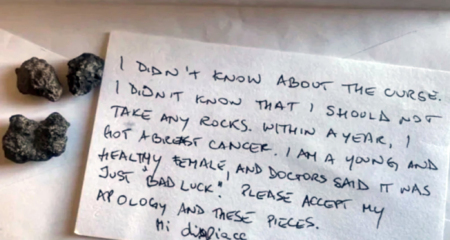 I DIDN'T KNOW ABOUT THE CURSE.
I DIDN'T KNOW THAT I SHOULD NOT
TAKE ANY ROCKS. WITHIN A YEAR, I
GOT A BREAST CANCER. I AM A YOUNG AND
HEALTHY FEMALE, AND DOCTORS SAID IT WAS
JUST "BAD LUCK". PLEASE ACCEPT MY
APOLOGY AND THESE PIECES.
Mi dispiace